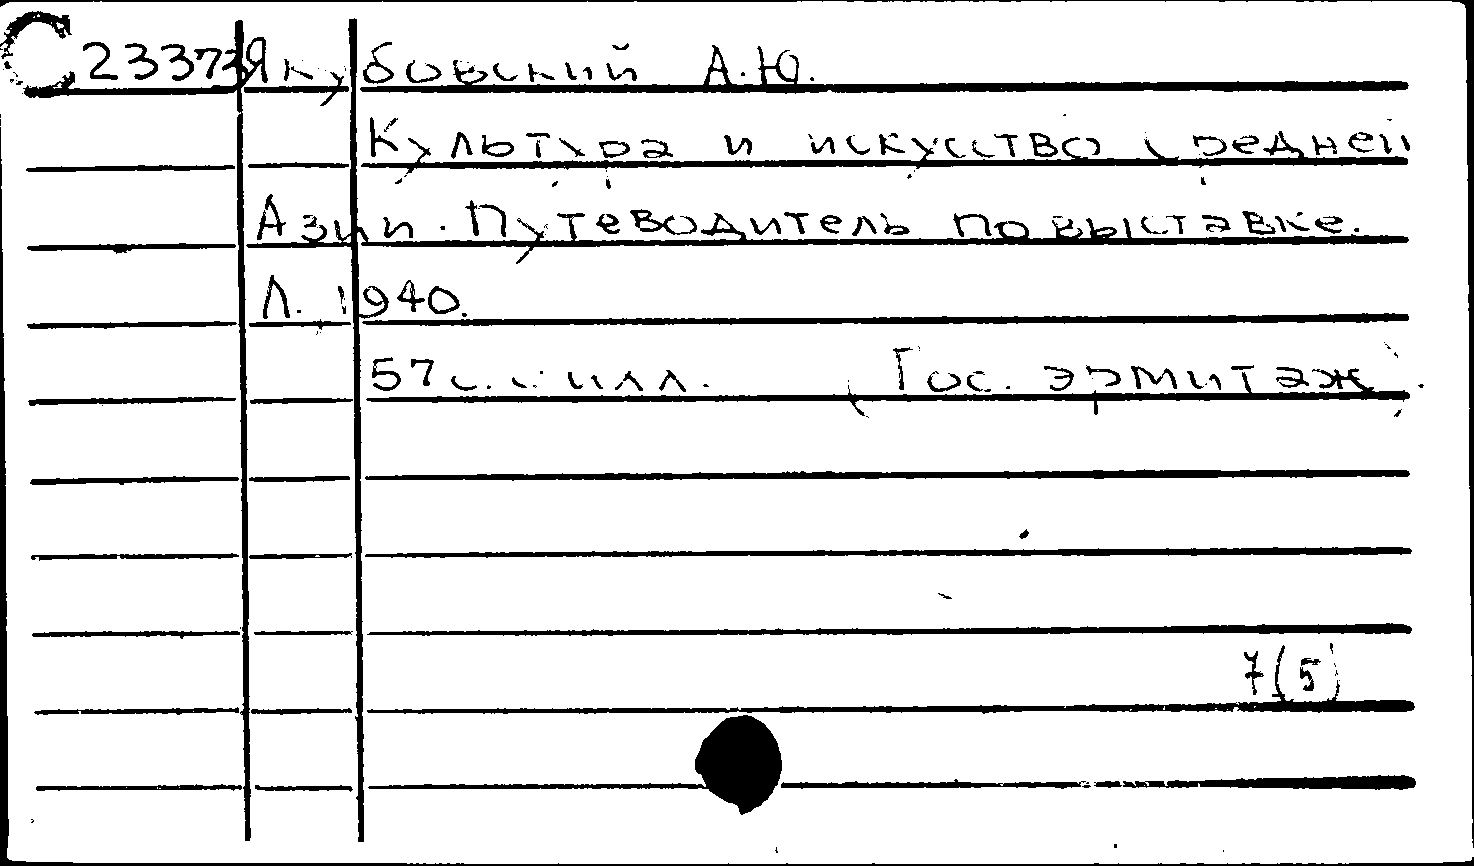 С 23373 Якубовский А.Ю.
Культура и искусство Средней
Азии. Путеводитель по выставке.
Л. 1940.
57 с. с илл. (Гос. эрмитаж).
7(5)